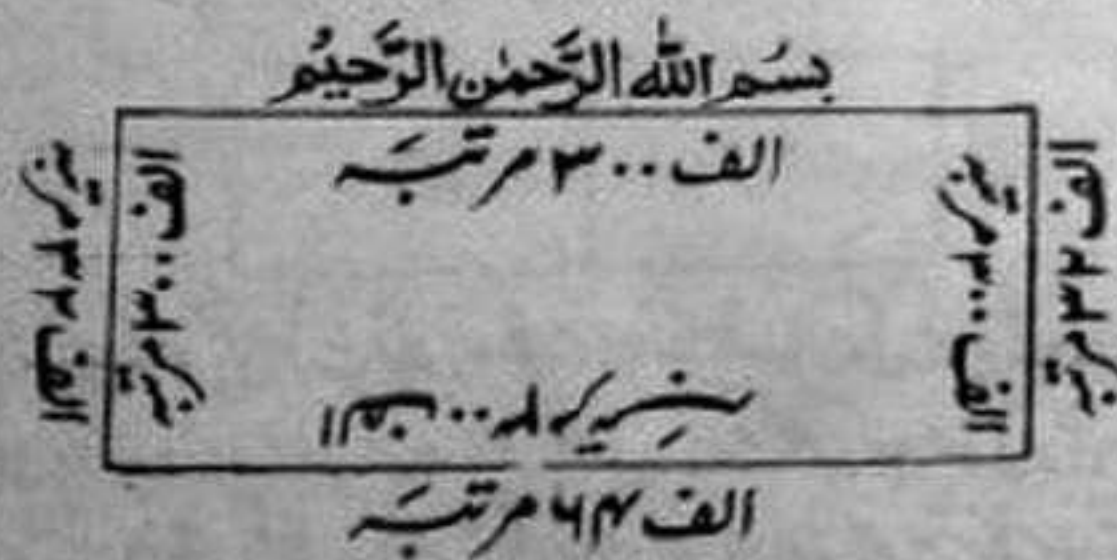 بسم الله الرَّحمٰن الرَّحيم
الف ۳۰۰ مرتبہ
الف ۳۲ مرتبہ
الف ۳۰۰ مرتبہ
الف ۳۰۰ مرتبہ
الف ۳۲ مرتبہ
الف ۳۰۰ مرتبہ
الف ۶۴ مرتبہ